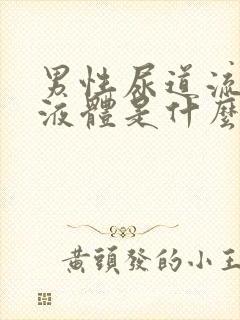 男性尿道流
液體是什麼
黃頭發的小王